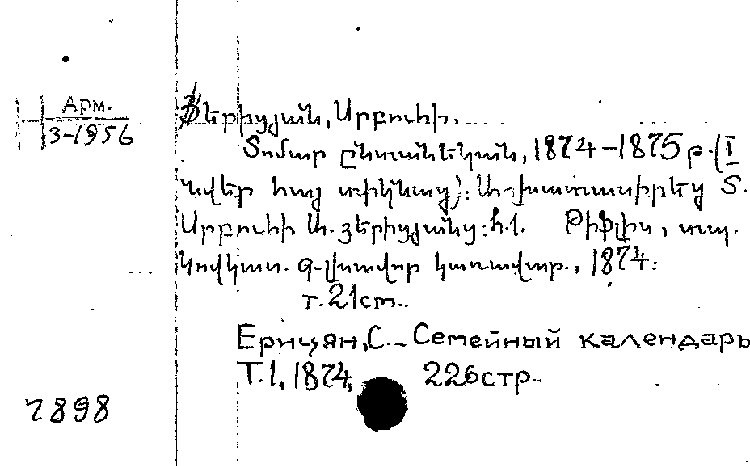 Арм.
3-1956
Երիցյան, Սրբուհի.
Տոմար ընտանեկան, 1874-1875 թ. (I
նվեր հայ տիկնայց): Աշխատասիրեց Տ.
Սրբուհի Տ. Երիցյանց: հ.1. Թիֆլիս, տպ.
Կովկաս. գլխավոր կառավար., 1874:
т. 21cm.
Ерицян, С. - Семейный календарь
Т.1, 1874, 226стр.
7898